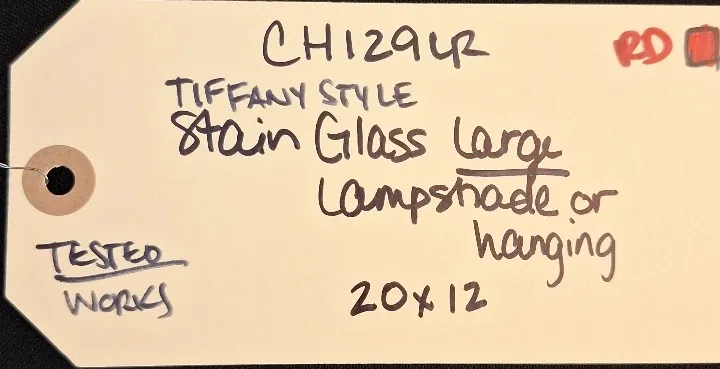 CH129LR
RD
TIFFANY STYLE
Stain Glass Large
Lampshade or
hanging
TESTED
WORKS
20x12